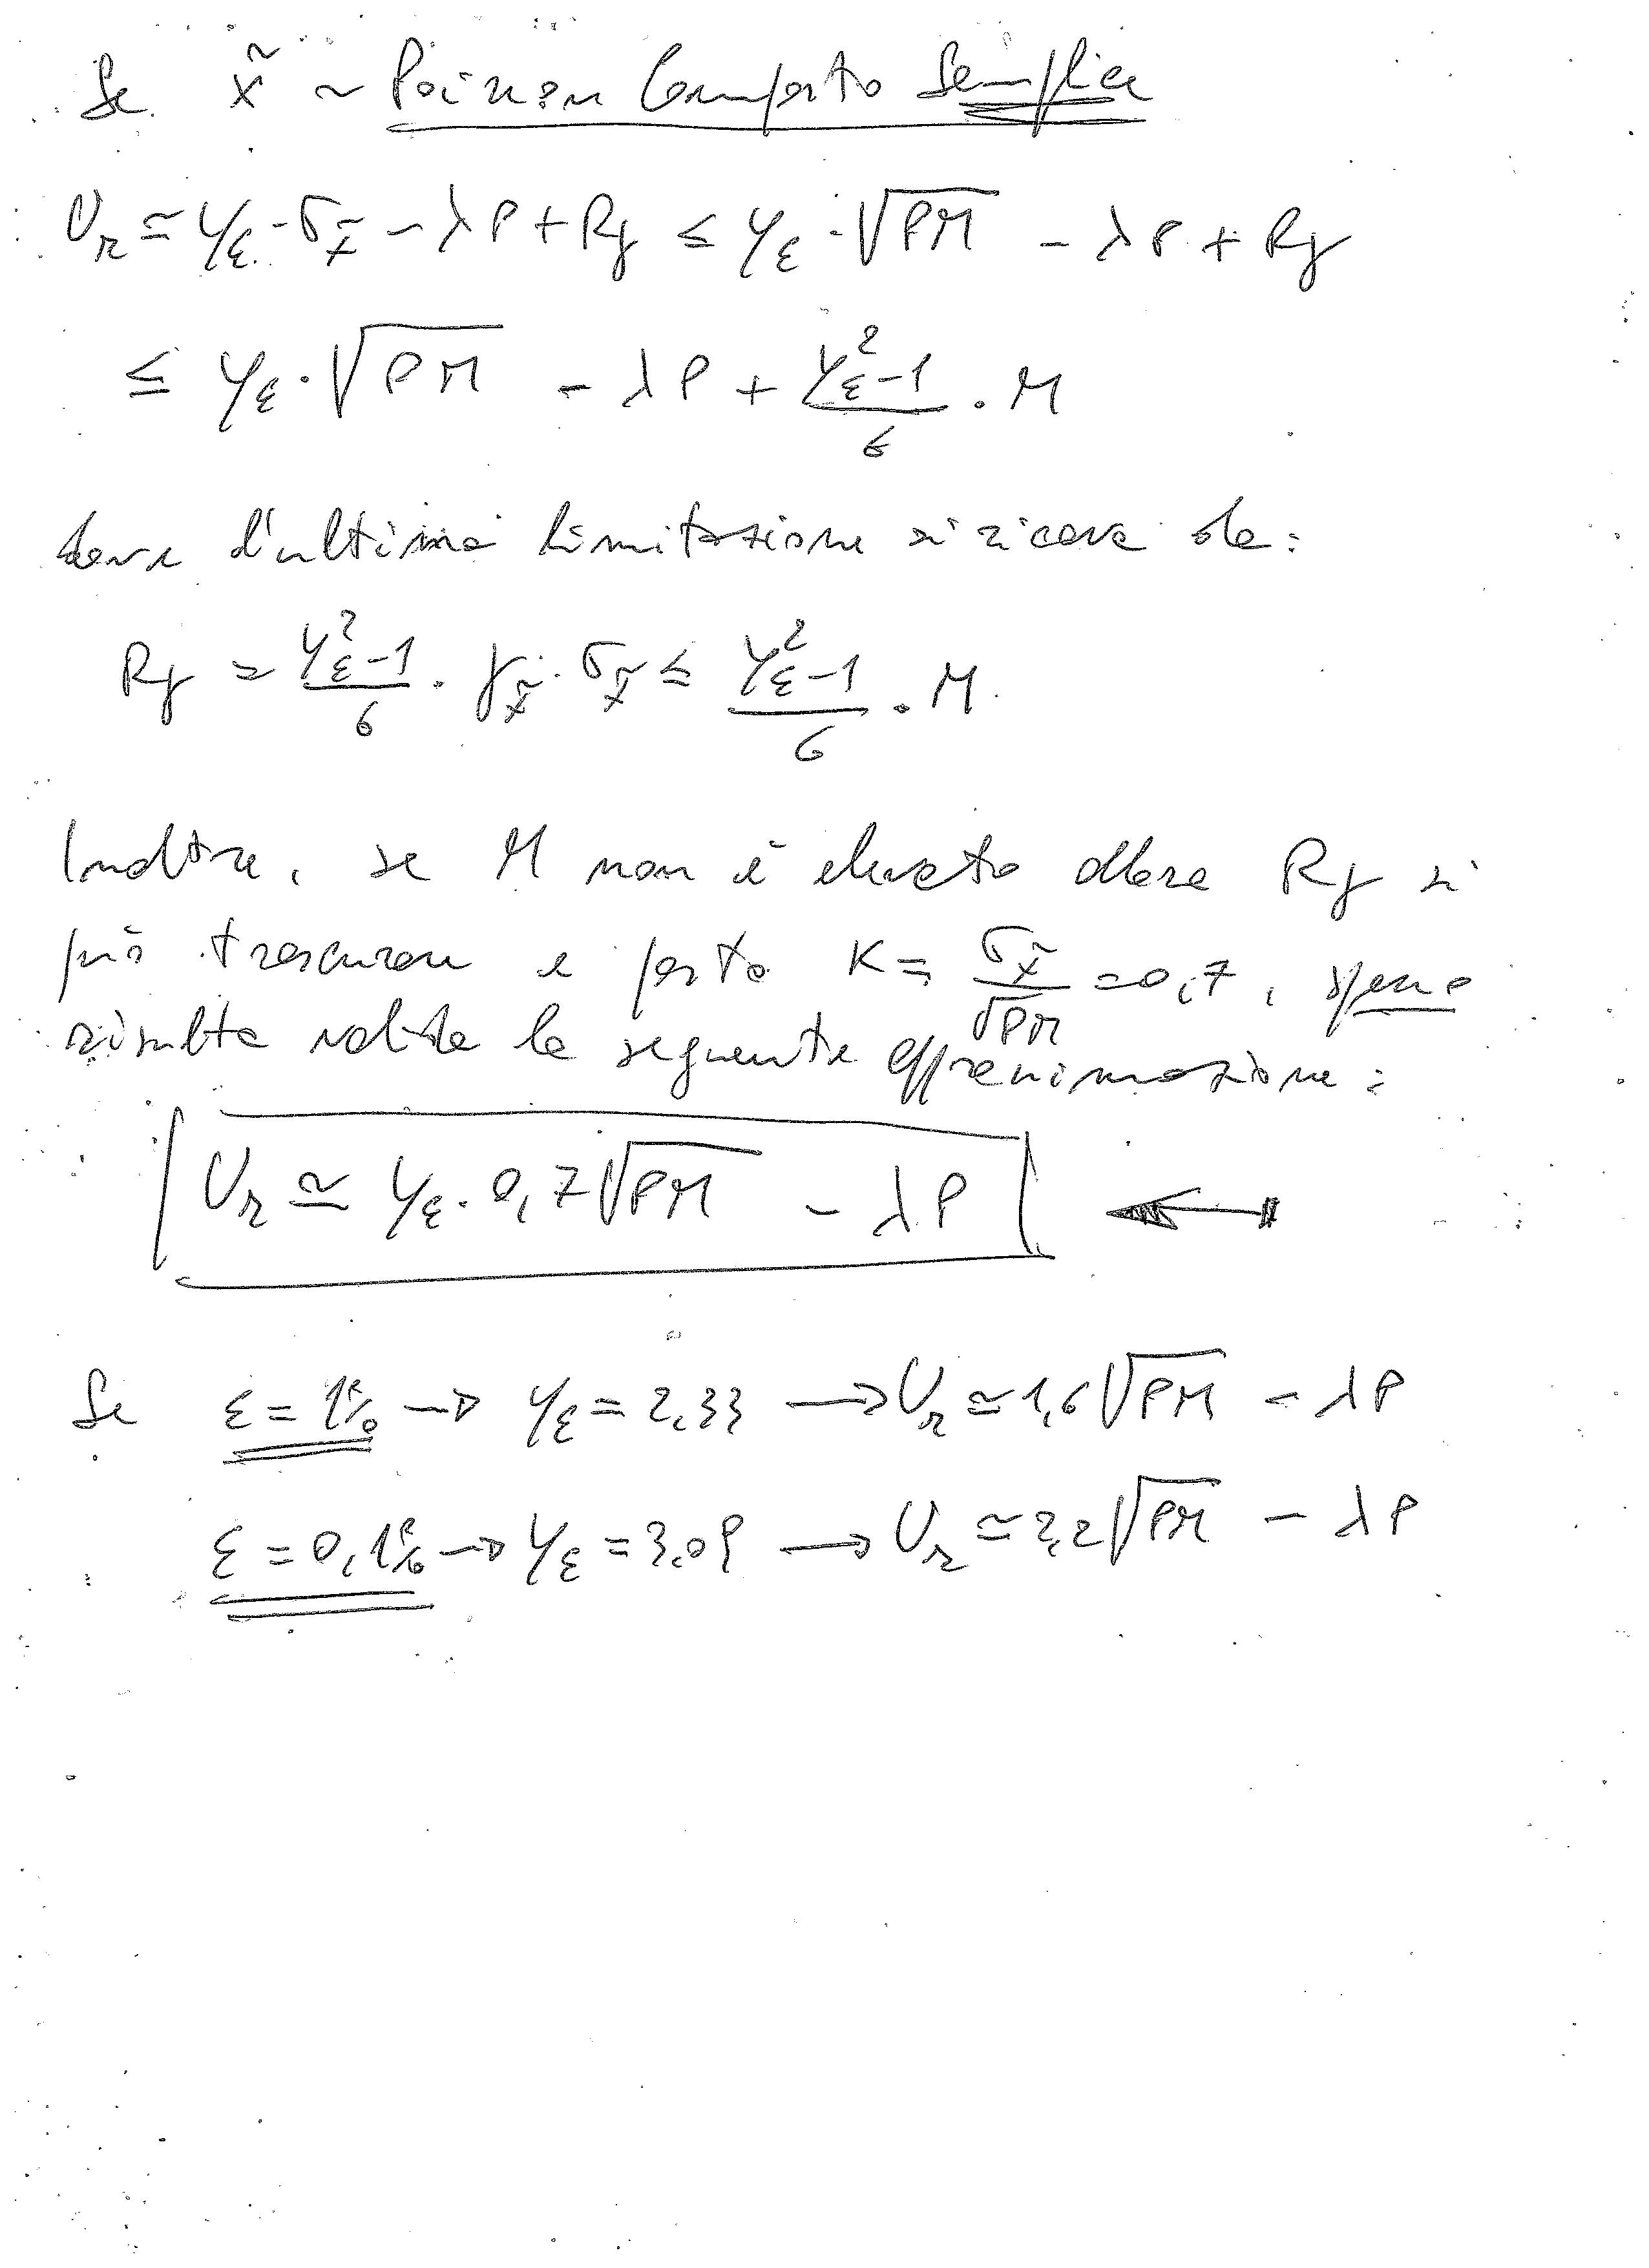 Se x̃ ~ Poisson Composto Semplice
U_r ≃ y_ε · σ_x̃ − λP + R_γ ≤ y_ε · √PM − λP + R_γ
≤ y_ε · √PM − λP + (y_ε² − 1)/6 · M
dove l'ultima limitazione si ricava da:
R_γ = (y_ε² − 1)/6 · γ_x̃ · σ_x̃ ≤ (y_ε² − 1)/6 · M.
Inoltre, se M non è elevato allora R_γ si
può trascurare e posto K = σ_x̃/√PM = 0,7, spesso
risulta valida la seguente approssimazione:
U_r ≃ y_ε · 0,7 √PM − λP ←
Se ε = 1% → y_ε = 2,33 → U_r ≃ 1,6 √PM − λP
ε = 0,1% → y_ε = 3,09 → U_r ≃ 2,2 √PM − λP